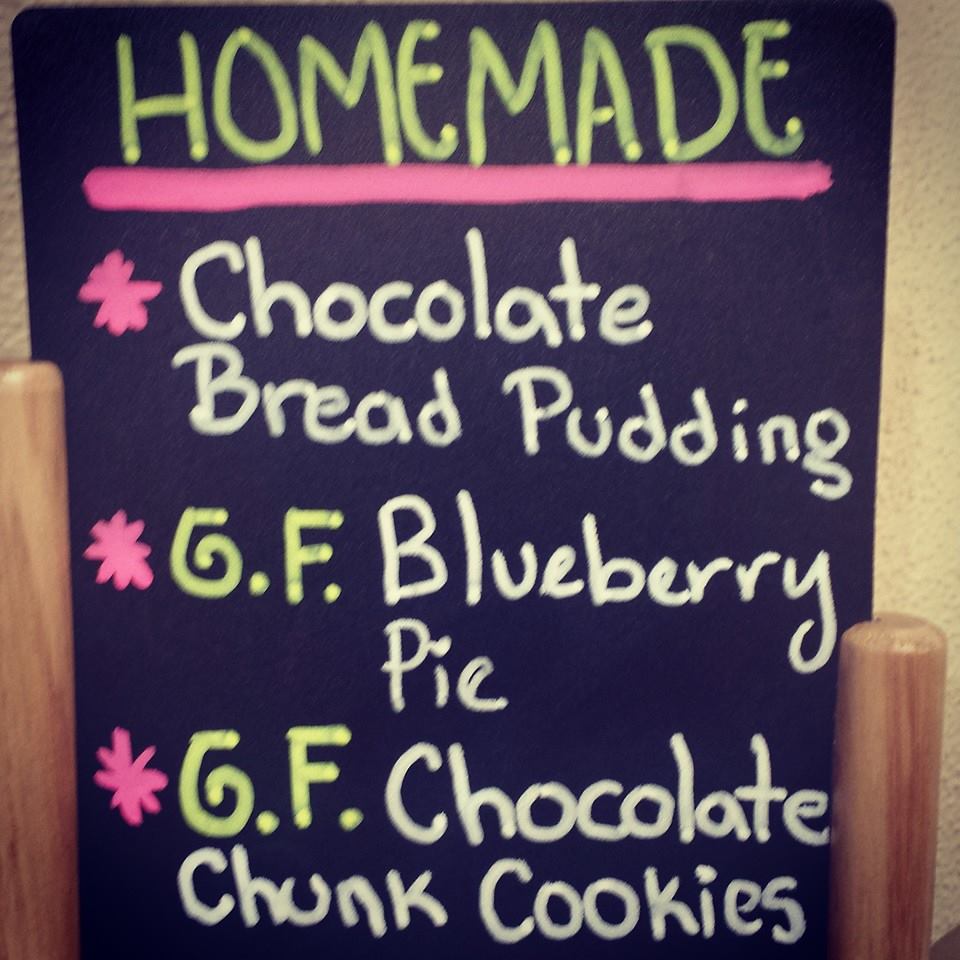 HOMEMADE
* Chocolate
Bread Pudding
* G.F. Blueberry
Pie
* G.F. Chocolate
Chunk Cookies